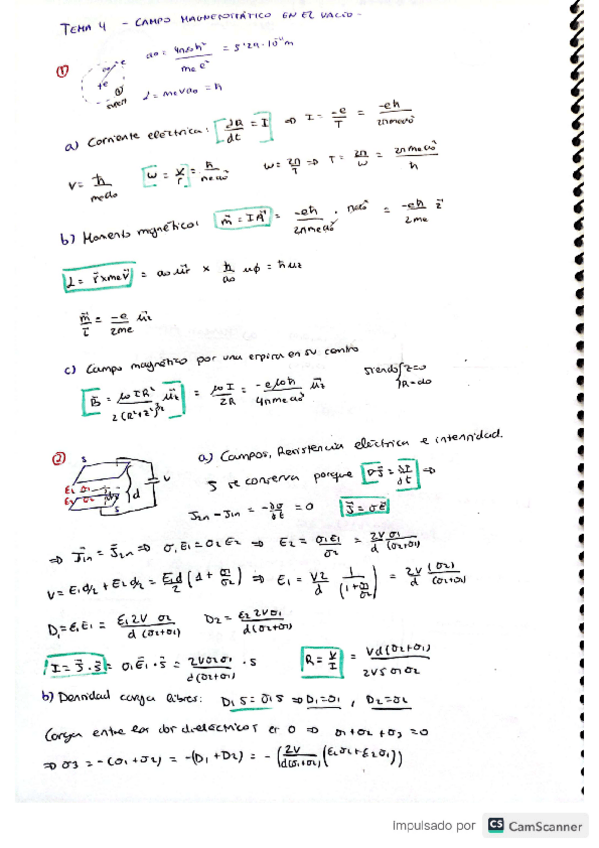 TEMA 4 - CAMPO MAGNETOSTÁTICO EN EL VACÍO -
① a₀ = 4πε₀ħ² / mₑe² = 5'29·10⁻¹¹ m
L = mₑva₀ = ħ
a) Corriente eléctrica: dQ/dt = I ⇒ I = -e/T = -eħ / 2πmₑa₀²
v = ħ / mₑa₀    w = v/r = ħ / mₑa₀²    w = 2π/T ⇒ T = 2π/w = 2πmₑa₀² / ħ
b) Momento magnético: m⃗ = I A⃗ = -eħ / 2πmₑa₀² · πa₀² = -eħ / 2mₑ z⃗
L = r⃗ x mₑv⃗ = a₀ u⃗r × ħ/a₀ uφ = ħ uz
m⃗ / L⃗ = -e / 2mₑ u⃗z
c) Campo magnético por una espira en su centro
B⃗ = μ₀ I R² / 2(R²+z²)^3/2 u⃗z = μ₀I / 2R = -eμ₀ħ / 4πmₑa₀³ u⃗z    siendo { z=0 R=a₀
② S ε₁ σ₁ ε₂ σ₂ S d V
a) Campos, Resistencia eléctrica e intensidad.
J se conserva porque ∇J⃗ = ∂ρ/∂t ⇒
J₂n - J₁n = -∂σ/∂t = 0    J⃗ = σE⃗
⇒ J⃗₁n = J⃗₂n ⇒ σ₁E₁ = σ₂E₂ ⇒ E₂ = σ₁E₁ / σ₂ = 2Vσ₁ / d (σ₂+σ₁)
V = E₁d/2 + E₂d/2 = E₁d/2 (1 + σ₁/σ₂) ⇒ E₁ = V2/d (1 / (1+σ₁/σ₂)) = 2V/d (σ₂) / (σ₂+σ₁)
D₁ = ε₁E₁ = ε₁2V σ₂ / d (σ₂+σ₁)    D₂ = ε₂2Vσ₁ / d(σ₂+σ₁)
I = J⃗ · S⃗ = σ₁E⃗₁ · S⃗ = 2Vσ₂σ₁ / d(σ₂+σ₁) · S    R = V/I = Vd(σ₂+σ₁) / 2VSσ₁σ₂
b) Densidad carga libres: D₁S = σ₁S ⇒ D₁=σ₁ , D₂=σ₂
Carga entre los dos dieléctricos es 0 ⇒ σ₁+σ₂+σ₃ = 0
⇒ σ₃ = -(σ₁+σ₂) = -(D₁+D₂) = -(2V / d(σ₁+σ₂) (ε₁σ₂+ε₂σ₁))
Impulsado por CS CamScanner